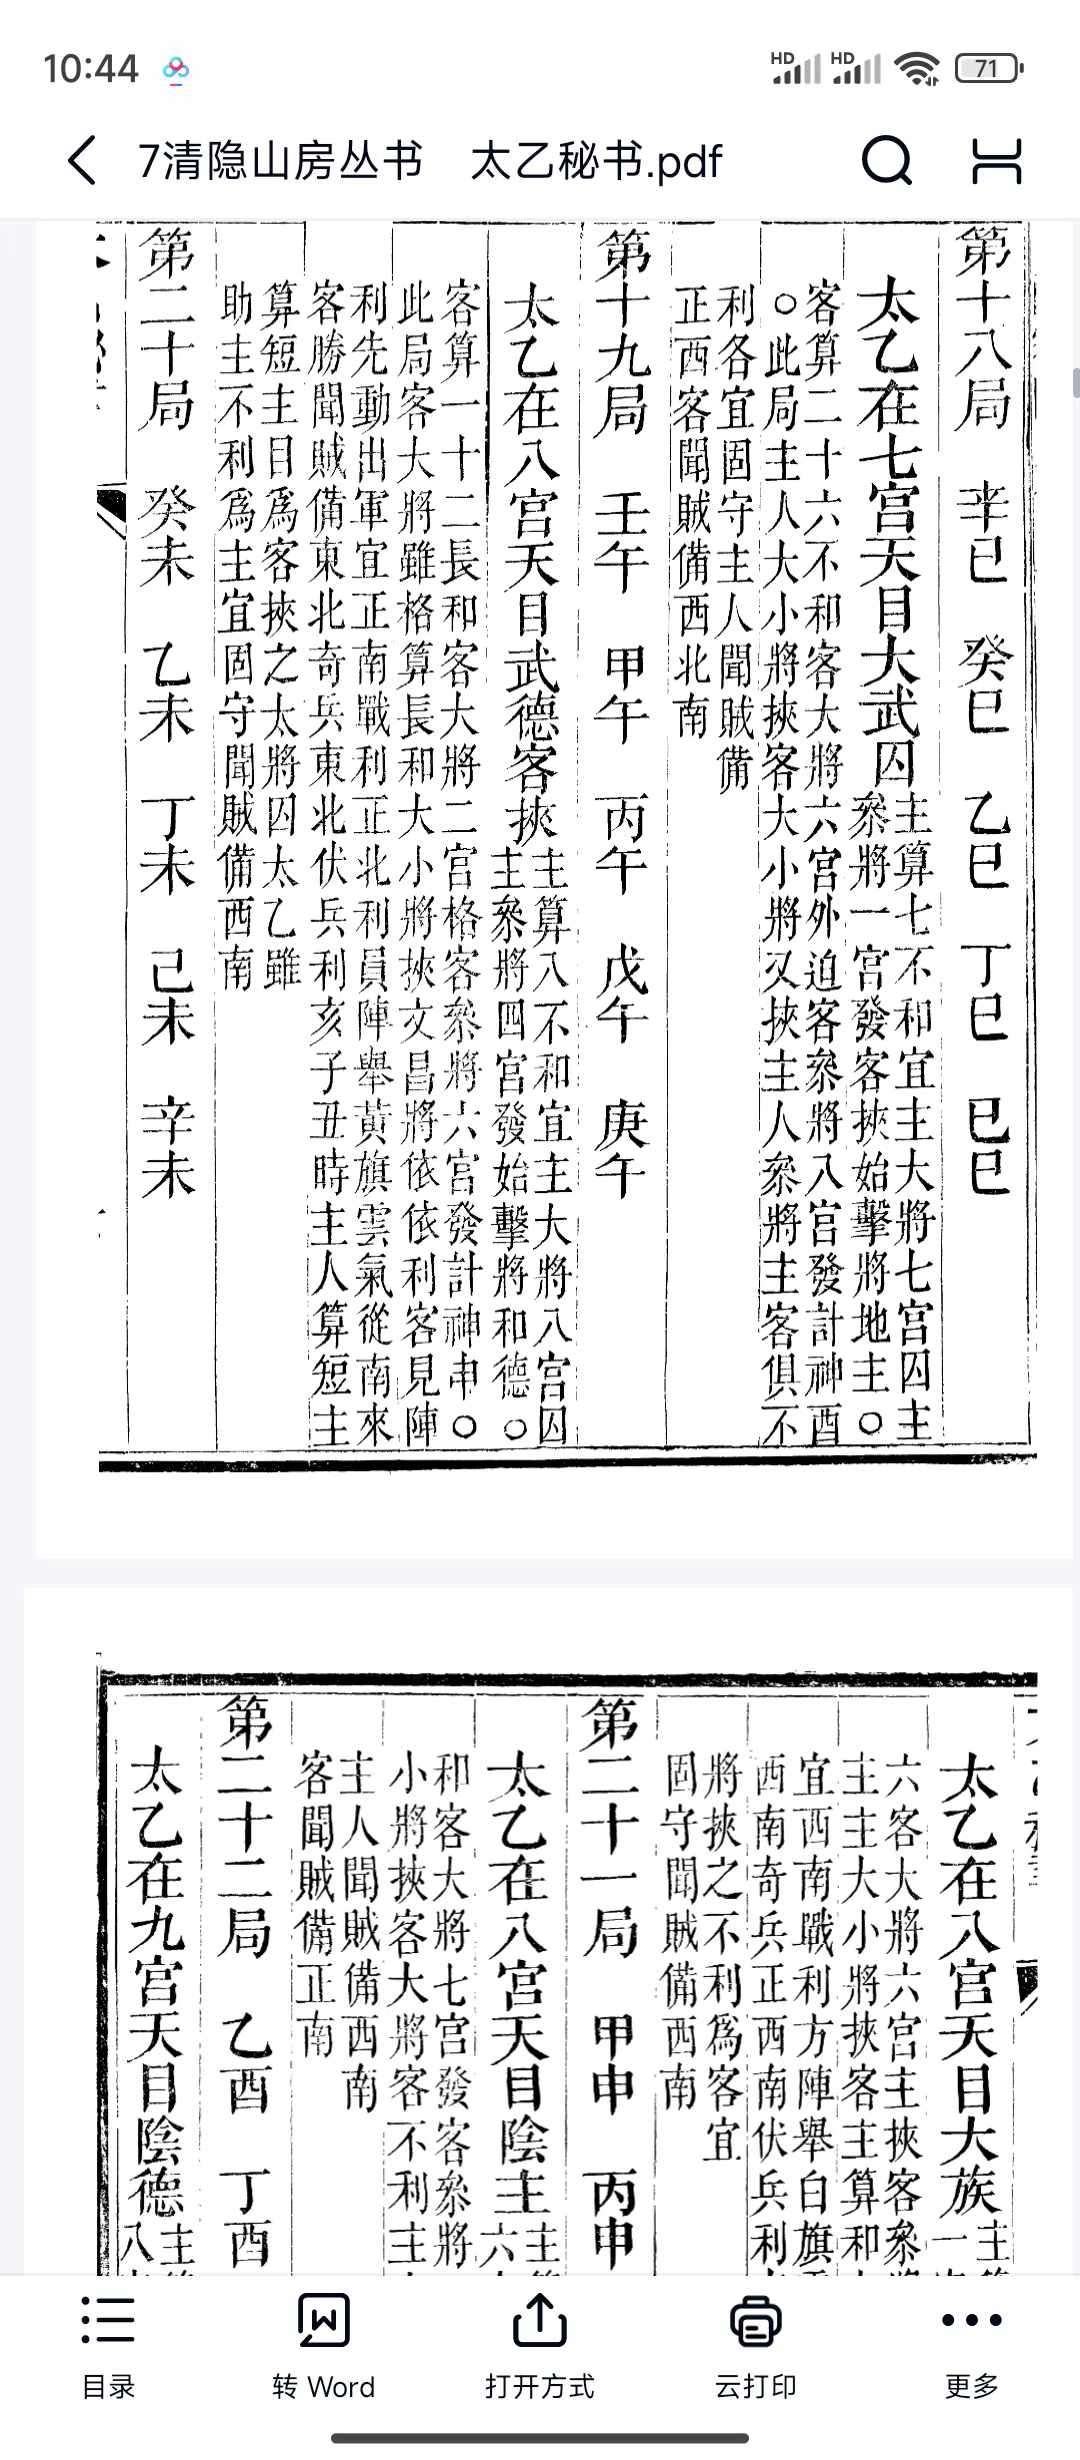 10:44
71
7清隐山房丛书 太乙秘书.pdf
第十八局 辛巳 癸巳 乙巳 丁巳 巳巳
太乙在七宫天目大武囚
主算七不和宜主大將七宫囚主
叅將一宫發客挾始擊將地主○
客算二十六不和客大將六宫外迫客叅將八宫發計神酉
○此局主人大小將挾客大小將又挾主人叅將主客俱不
利各宜固守主人聞賊備
正西客聞賊備西北南
第十九局 壬午 甲午 丙午 戊午 庚午
太乙在八宫天目武德客挾
主算八不和宜主大將八宫囚
主叅將四宫發始擊將和德○
客算一十二長和客大將二宫格客叅將六宫發計神申○
此局客大將雖格算長和大小將挾文昌將依依利客見陣
利先動出軍宜正南戰利正北利員陣舉黃旗雲氣從南來
客勝聞賊備東北奇兵東北伏兵利亥子丑時主人算短主
算短主目爲客挾之太將囚太乙雖
助主不利爲主宜固守聞賊備西南
第二十局 癸未 乙未 丁未 己未 辛未
太乙在八宫天目大族
主
一
六客大將六宫主挾客叅將
主主大小將挾客主算和
宜西南戰利方陣舉白旗
西南奇兵正西南伏兵利
將挾之不利爲客宜
固守聞賊備西南
第二十一局 甲申 丙申
太乙在八宫天目陰主
主
六
和客大將七宫發客叅將
小將挾客大將客不利主
主人聞賊備西南
客聞賊備正南
第二十二局 乙酉 丁酉
太乙在九宫天目陰德
主
八
目录
转 Word
打开方式
云打印
更多